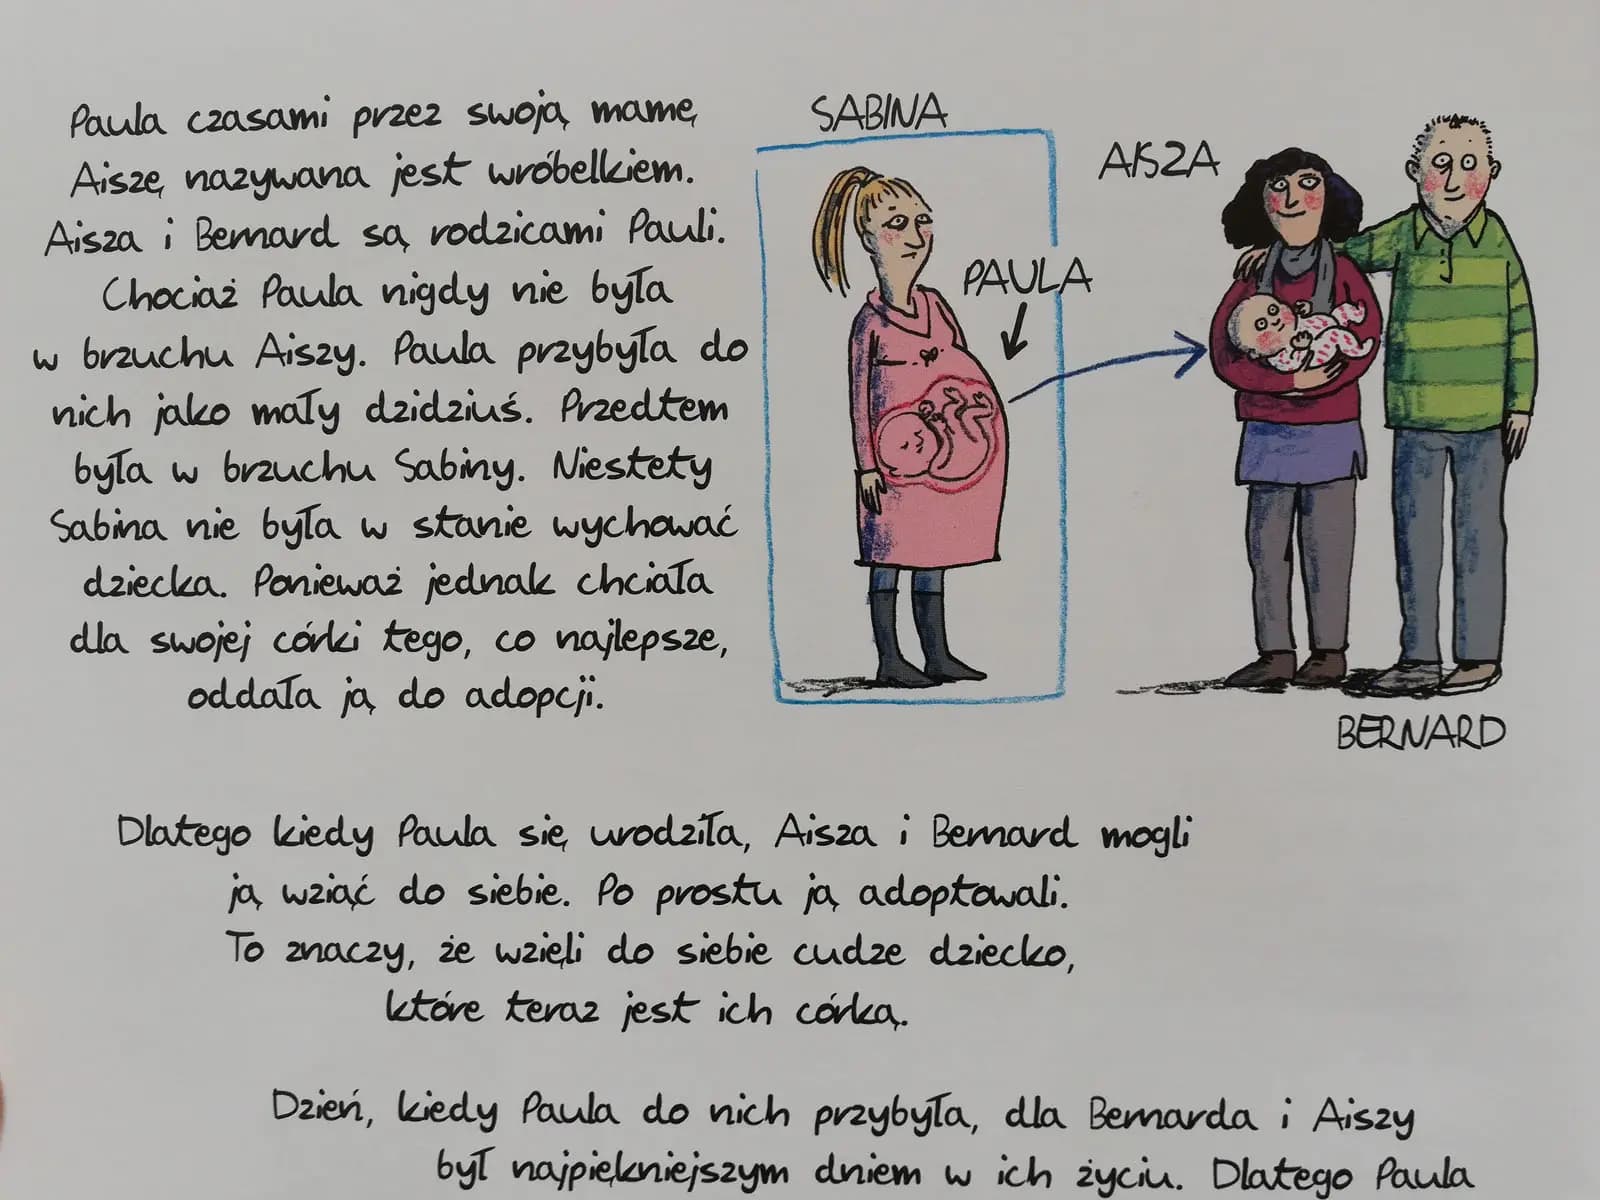 Paula czasami przez swoją mamę
Aiszę nazywana jest wróbelkiem.
Aisza i Bernard są rodzicami Pauli.
Chociaż Paula nigdy nie była
w brzuchu Aiszy. Paula przybyła do
nich jako mały dzidziuś. Przedtem
była w brzuchu Sabiny. Niestety
Sabina nie była w stanie wychować
dziecka. Ponieważ jednak chciała
dla swojej córki tego, co najlepsze,
oddała ją do adopcji.
SABINA
PAULA
AISZA
BERNARD
Dlatego kiedy Paula się urodziła, Aisza i Bernard mogli
ją wziąć do siebie. Po prostu ją adoptowali.
To znaczy, że wzięli do siebie cudze dziecko,
które teraz jest ich córką.
Dzień, kiedy Paula do nich przybyła, dla Bernarda i Aiszy
był najpiękniejszym dniem w ich życiu. Dlatego Paula